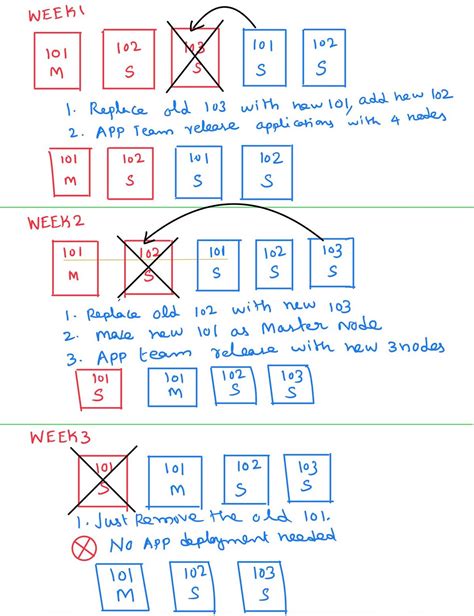 WEEK1
101 102 103 101 102
M S S S S
1. Replace old 103 with new 101, add new 102
2. APP Team release applications with 4 nodes
101 102 101 102
M S S S
WEEK2
101 102 101 102 103
M S S S S
1. Replace old 102 with new 103
2. make new 101 as Master Node
3. App team release with new 3 nodes
101 101 102 103
S M S S
WEEK3
101 101 102 103
S M S S
1. Just Remove the old 101.
No App deployment needed
101 102 103
M S S